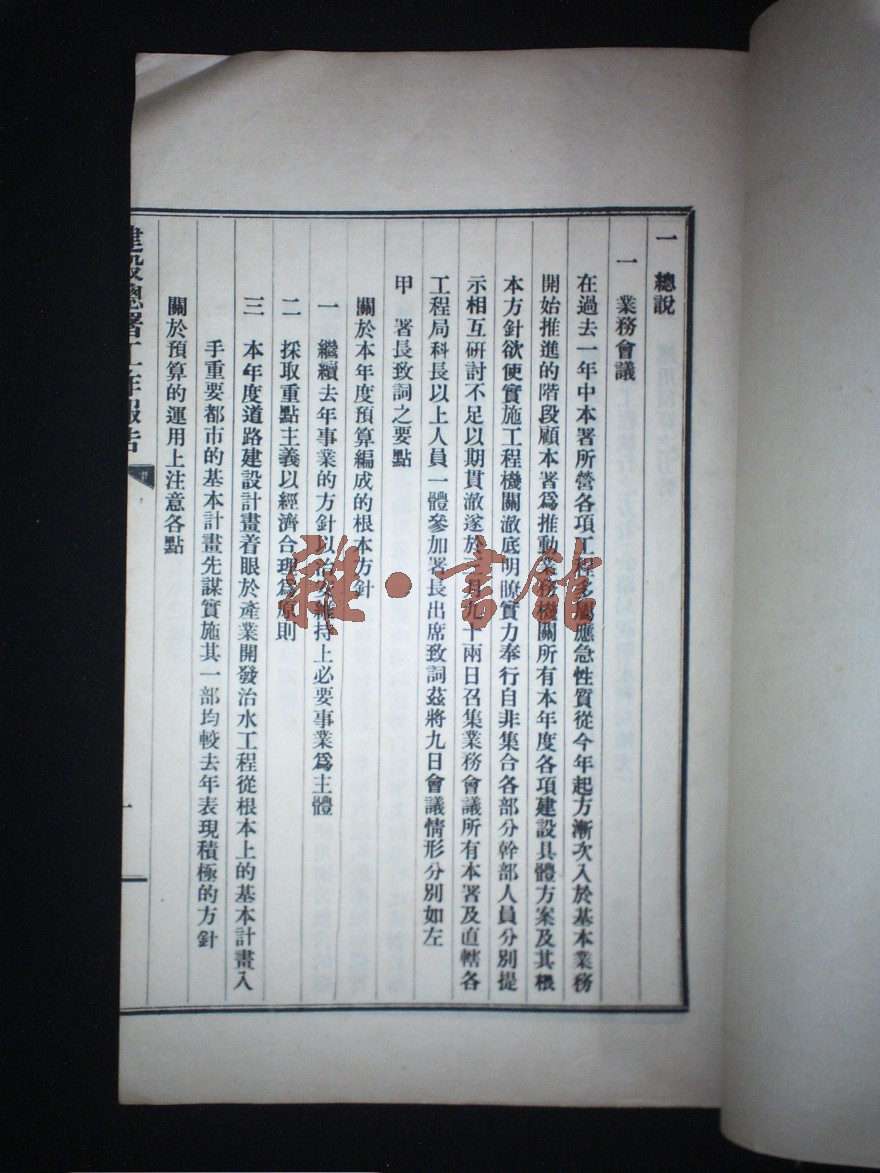 一 總說
一 業務會議
在過去一年中本署所營各項工程多屬應急性質從今年起方漸次入於基本業務
開始推進的階段顧本署爲推動業務機關所有本年度各項建設具體方案及其根
本方針欲使實施工程機關澈底明瞭實力奉行自非集合各部分幹部人員分別提
示相互研討不足以期貫澈遂於三月九十兩日召集業務會議所有本署及直轄各
工程局科長以上人員一體參加署長出席致詞茲將九日會議情形分別如左
甲 署長致詞之要點
關於本年度預算編成的根本方針
一 繼續去年事業的方針以治安維持上必要事業爲主體
二 採取重點主義以經濟合理爲原則
三 本年度道路建設計畫着眼於產業開發治水工程從根本上的基本計畫入
手重要都市的基本計畫先謀實施其一部均較去年表現積極的方針
關於預算的運用上注意各點
建設總署工作報告
一
雜·書館